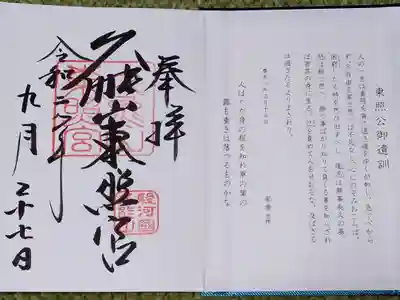 東照公御遺訓
人の一生は重荷を負て遠き道を行くが如し、急ぐべから
ず、不自由を常と思へば不足なし、心にのぞみおこらば、
困窮したる時を思ひ出すべし、堪忍は無事長久の基、
勝つ事ばかり知りて負くる事を知らざれ
ば害其の身に至る、己を責めて人をせむるな、及ばざる
は過ぎたるよりまされり。
人はただ身の程を知れ草の葉の
露も重きは落つるものかな
奉拝
久能山東照宮
令和二年
九月二十七日
東照宮
駿河國